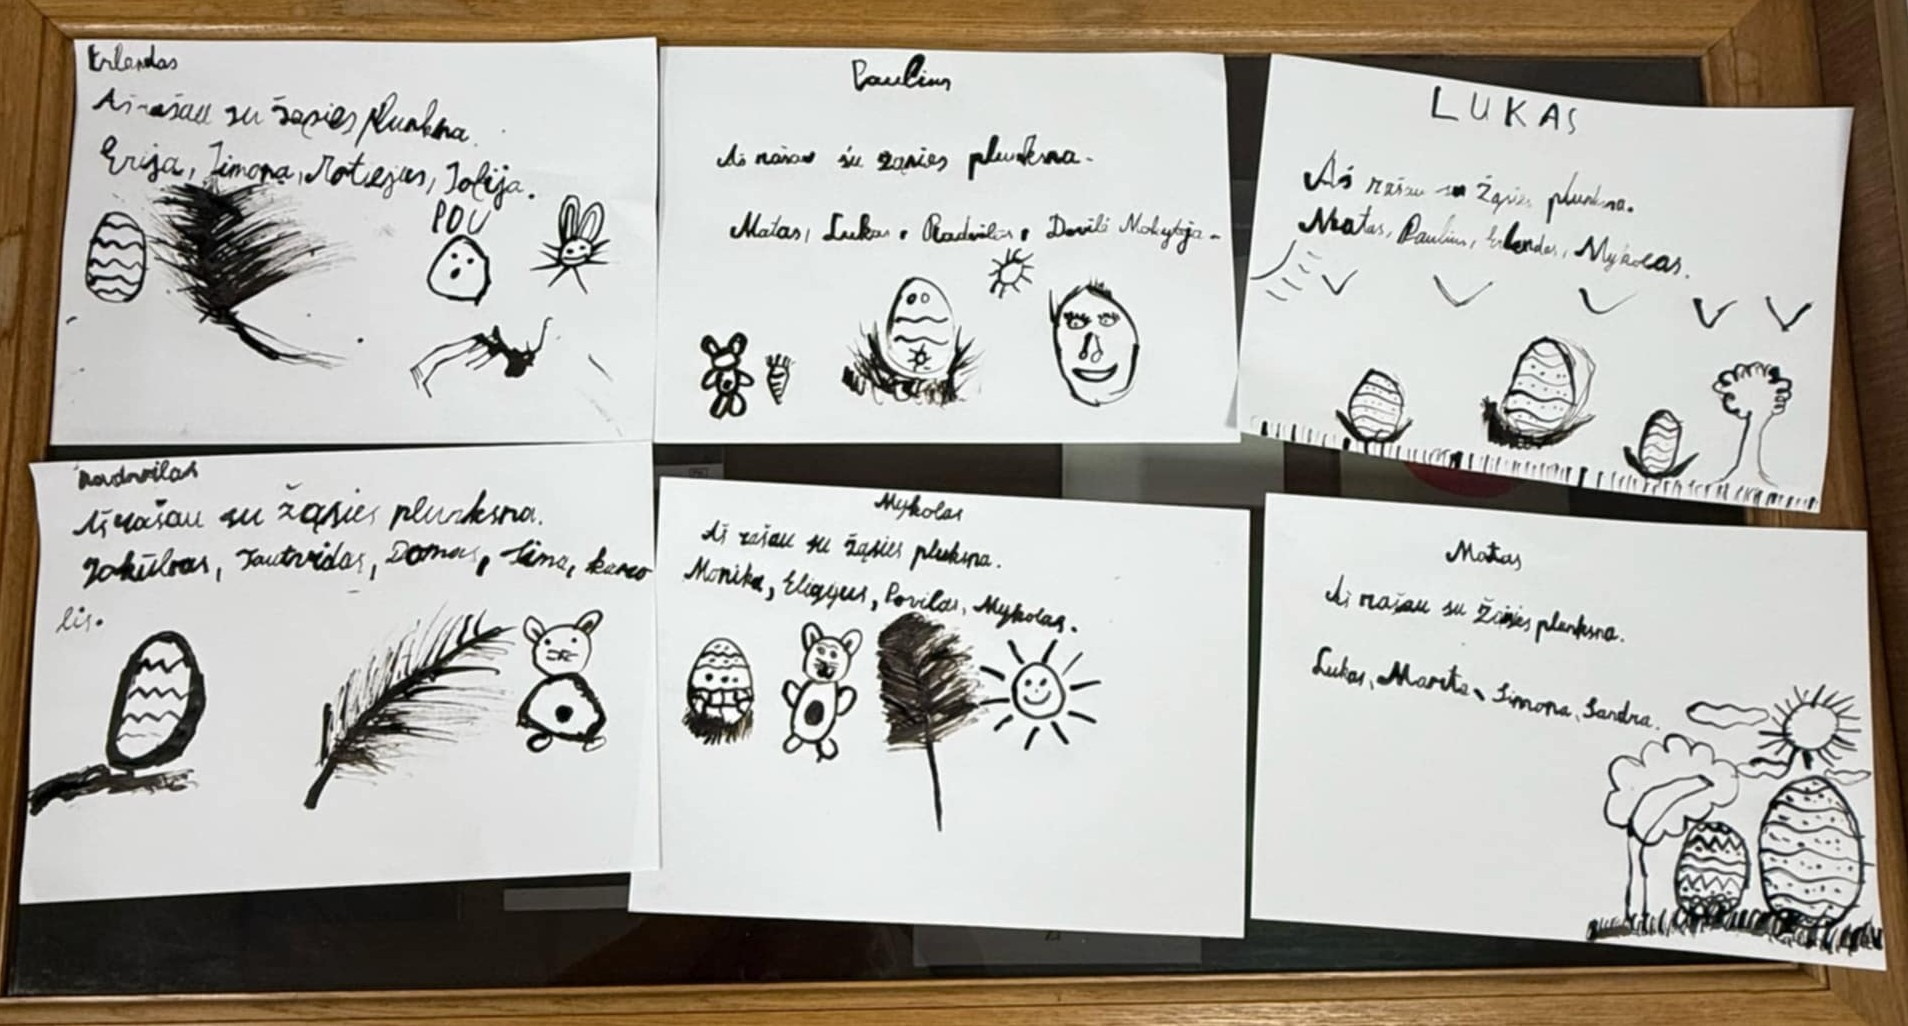 Erlendas
Aš rašau su žąsies plunksna.
Erija, Simona, Motiejus, Jolija.
POU
Paulius
Aš rašau su žąsies plunksna.
Matas, Lukas, Radvilas, Dovilė Mokytoja.
LUKAS
Aš rašau su žąsies plunksna.
Matas, Paulius, Erlendas, Mykolas.
Radvilas
Aš rašau su žąsies plunksna.
Jokūbas, Tautvidas, Domas, Simas, karo
lis.
Mykolas
Aš rašau su žąsies pluksna.
Monika, Povilas, Mykolas.
Matas
Aš rašau su žąsies plunksna.
Lukas, Simona, Sandra.